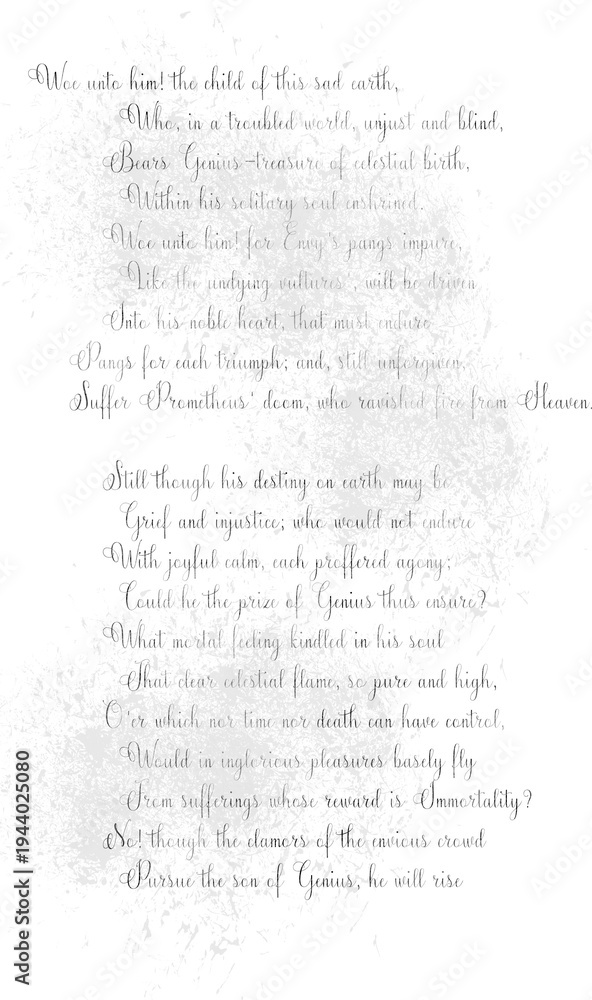 Woe unto him! the child of this sad earth,
Who, in a troubled world, unjust and blind,
Bears Genius-treasure of celestial birth,
Within his solitary soul enshrined.
Woe unto him! for Envy's pangs impure,
Like the undying vultures', will be driven
Into his noble heart, that must endure
Pangs for each triumph; and, still unforgiven,
Suffer Prometheus' doom, who ravished fire from Heaven.
Still though his destiny on earth may be
Grief and injustice; who would not endure
With joyful calm, each proffered agony;
Could he the prize of Genius thus ensure?
What mortal feeling kindled in his soul
That clear celestial flame, so pure and high,
'O'er which nor time nor death can have control,
Would in inglorious pleasures basely fly
From sufferings whose reward is Immortality?
No! though the clamors of the envious crowd
Pursue the son of Genius, he will rise
Adobe Stock | #1944025080
Adobe Stock